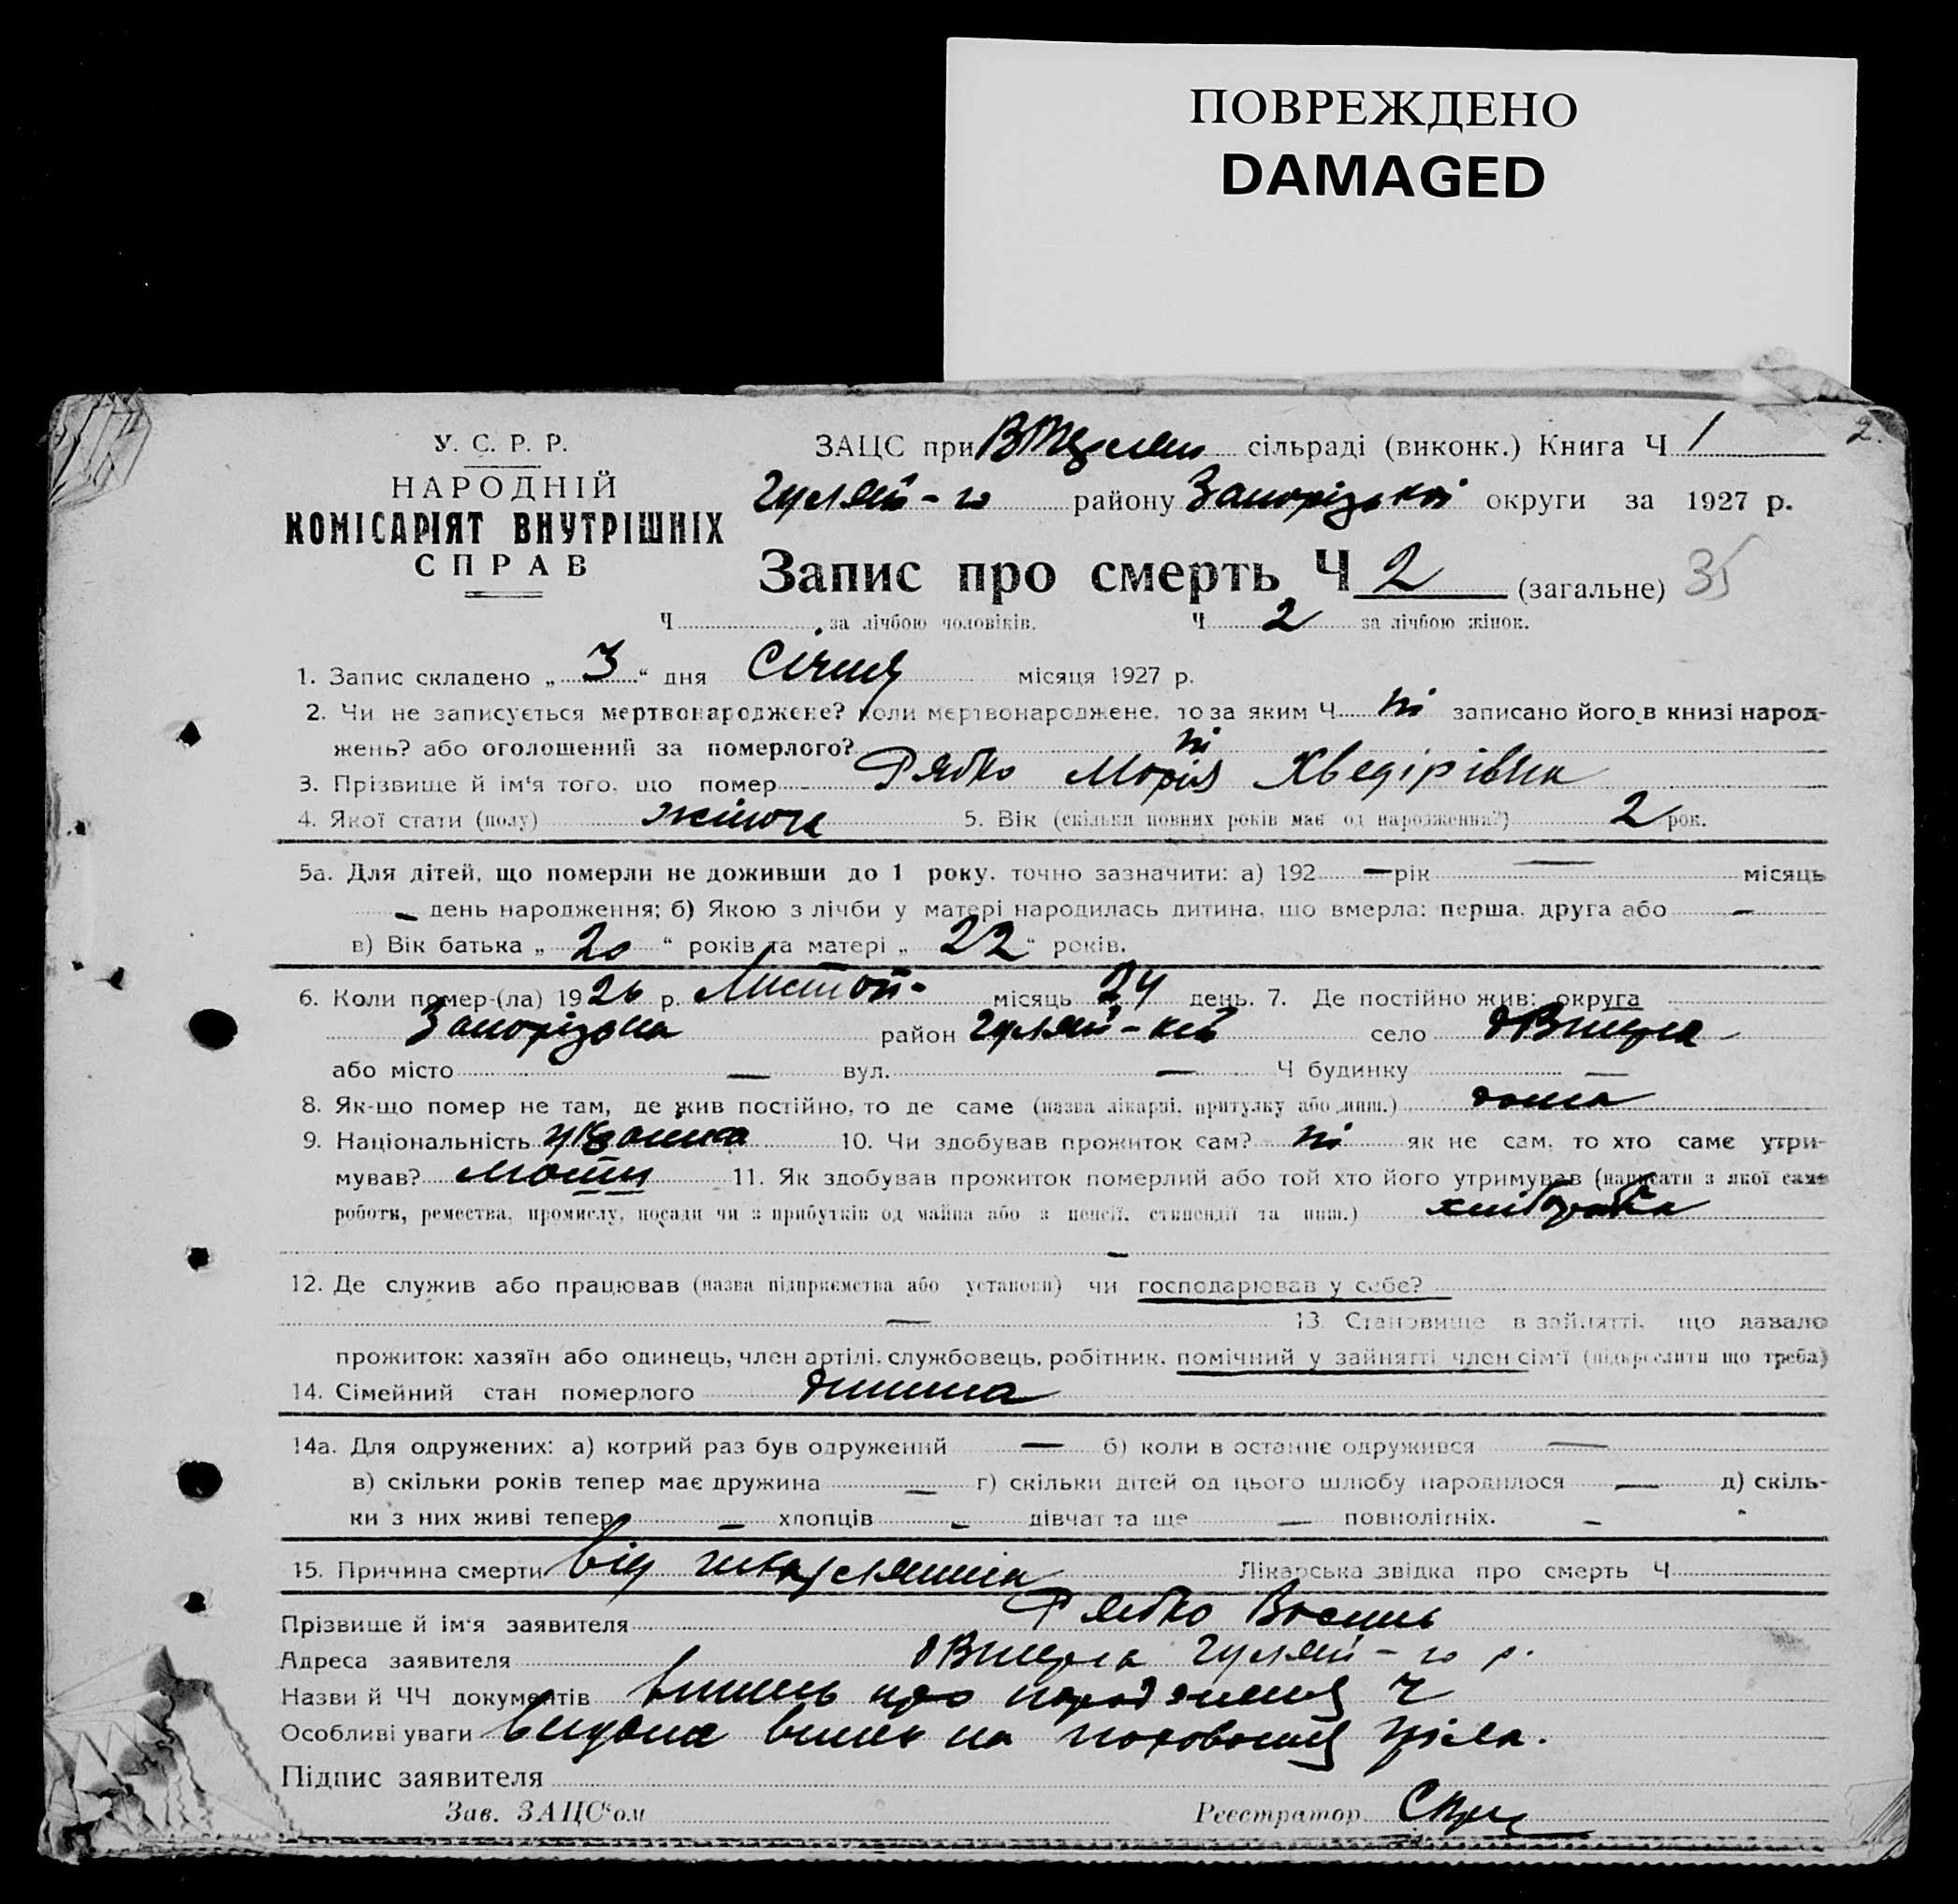 ПОВРЕЖДЕНО
DAMAGED
2.
У. С. Р. Р.
НАРОДНІЙ
КОМІСАРІЯТ ВНУТРІШНІХ
СПРАВ
ЗАЦС при сільраді (виконк.) Книга Ч 1
Гуляй-го району Запорізької округи за 1927 р.
Запис про смерть Ч 2 (загальне) 35
Ч за лічбою чоловіків. Ч 2 за лічбою жінок.
1. Запис складено „ 3 “ дня Січня місяця 1927 р.
2. Чи не записується мертвонароджене? Коли мертвонароджене, то за яким Ч ні записано його в книзі народ-
жень? або оголошений за померлого? ні
3. Прізвище й ім'я того, що помер Рябко Марія Хведірівна
4. Якої стати (полу) жіноча 5. Вік (скільки повних років має од народження?) 2 рок.
5а. Для дітей, що померли не доживши до 1 року, точно зазначити: а) 192 — рік — місяць
— день народження; б) Якою з лічби у матері народилась дитина, що вмерла: перша, друга або —
в) Вік батька „ 20 “ років та матері „ 22 “ років.
6. Коли помер-(ла) 1926 р. Листоп- місяць 24 день. 7. Де постійно жив: округа
Запорізька район Гуляй-кий село
або місто — вул. — Ч будинку —
8. Як-що помер не там, де жив постійно, то де саме (назва лікарні, притулку або инш.) дома
9. Національність 10. Чи здобував прожиток сам? ні як не сам, то хто саме утри-
мував? мати 11. Як здобував прожиток померлий або той хто його утримував (написати з якої саме
роботи, ремества, промислу, посади чи з прибутків од майна або з пенсії, стипендії та инш.)
—
12. Де служив або працював (назва підприємства або установи) чи господарював у себе?
— 13. Становище в зайнятті, що давало
прожиток: хазяїн або одинець, член артілі, службовець, робітник, помічний у зайнятті член сім'ї (підкреслити що треба)
14. Сімейний стан померлого дитина
14а. Для одружених: а) котрий раз був одружений — б) коли в останнє одружився —
в) скільки років тепер має дружина — г) скільки дітей од цього шлюбу народилося — д) скіль-
ки з них живі тепер — хлопців — дівчат та ще — повнолітніх. —
15. Причина смерти від Лікарська звідка про смерть Ч
Прізвище й ім'я заявителя Рябко Василь
Адреса заявителя Гуляй-го р.
Назви й ЧЧ документів про народження Ч
Особливі уваги видана на поховання тіла.
Підпис заявителя
Зав. ЗАЦС'ом Реєстратор